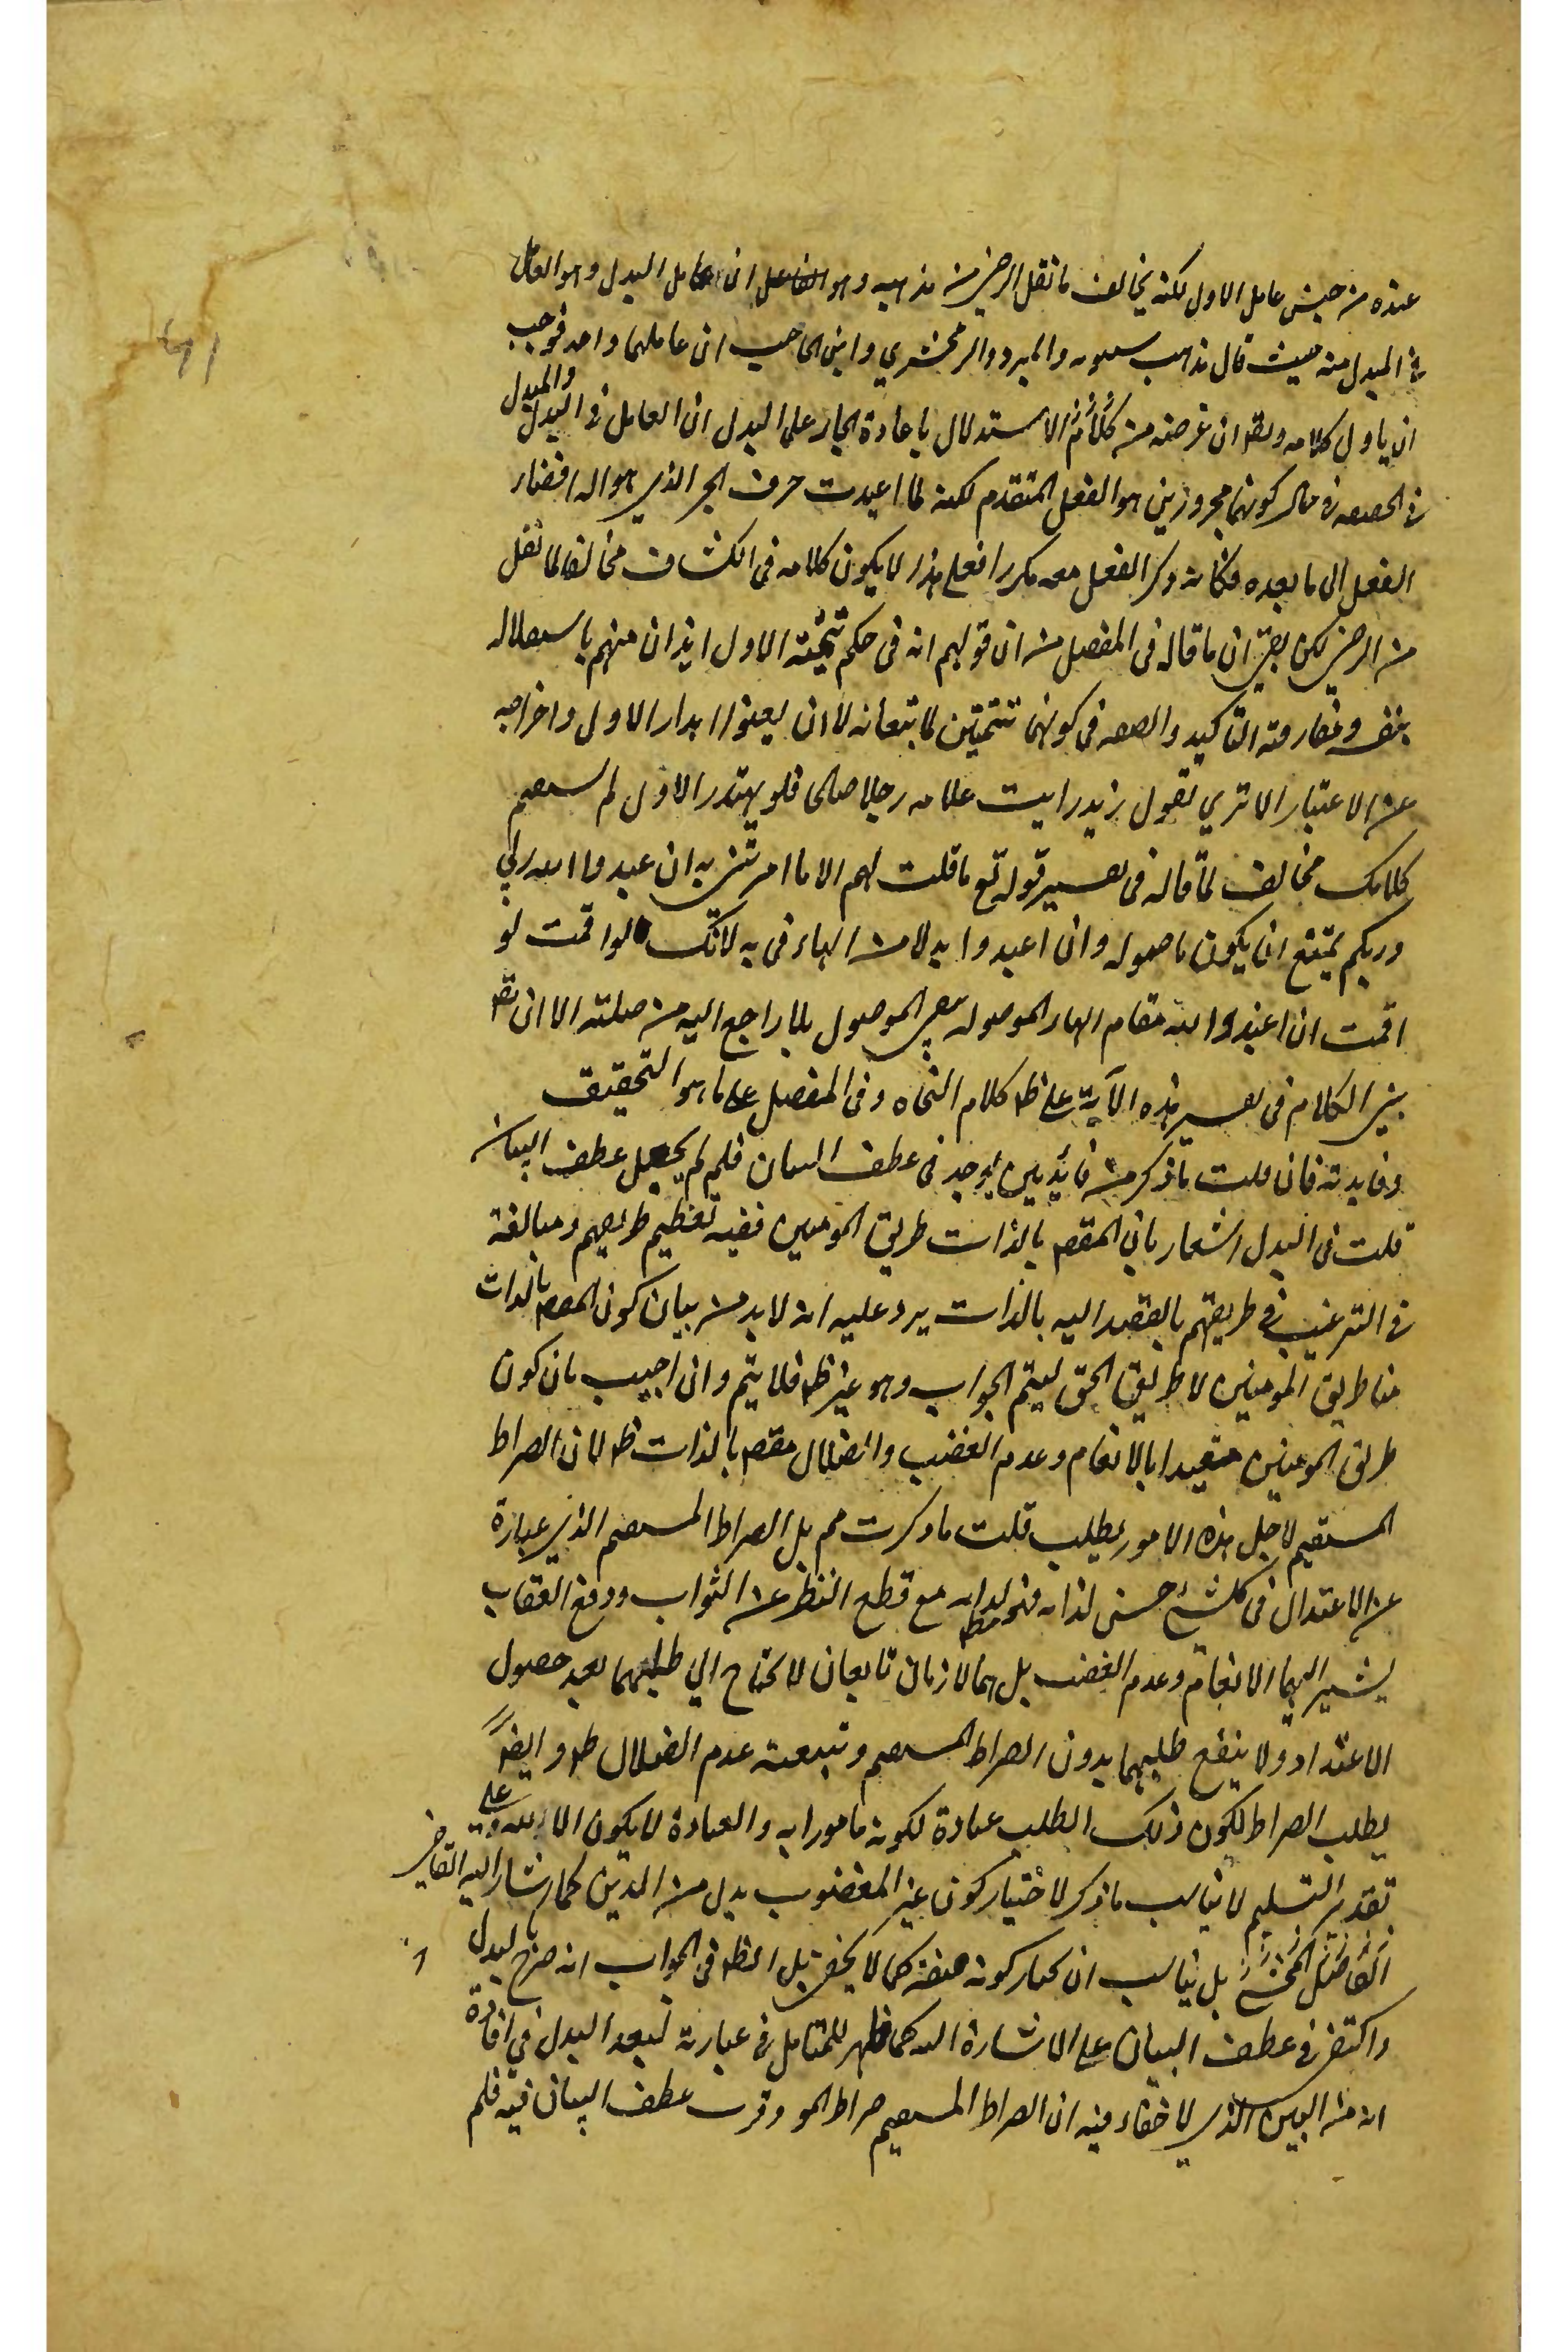 عنده من حيث عامل الاول لكنه يخالف ما نقل الرضي من مذهبه وهو ان عامل البدل وهو العامل
في المبدل منه حيث قال مذهب سيبويه والمبرد والزمخشري وابن الحاجب ان عاملهما واحد فوجب
ان ياول كلامه ويقه ان غرضه من كلامه الاستدلال باعادة الجار على البدل ان العامل في البدل والمبدل
في الحصيه في حال كونهما مجرورين هو الفعل المتقدم لكنه لما اعيدت حرف الجر الذي هو اله افضاء
الفعل الى ما بعده فكانه ذكر الفعل معه مكررا فعلى هذا لا يكون كلامه في الكشاف مخالفا لما نقل
من الرضي لكن بقي ان ما قاله في المفصل من ان قولهم انه في حكم تنحية الاول ايذان منهم باستقلاله
بنفسه ومفارقته التاكيد والصفه في كونهما تتمتين لما يتبعانه لا ان يعنوا اهدار الاول واخراجه
عن الاعتبار الا تري تقول زيد رايت غلامه رجلا صالحا فلو يهدر الاول لم يستقم
كلامك مخالف لما قاله في تفسير قوله تع ما قلت لهم الا ما امرتني به ان اعبدوا الله ربي
وربكم يمتنع ان يكون ما موصوله وان اعبدوا بدلا من الهاء في به لانك لو اقمت لو
اقمت ان اعبدوا الله مقام الهاء الموصوله يبقى الموصول بلا راجع اليه من صلته الا ان يقه
بني الكلام في تفسير هذه الآية على ظه كلام النحاه وفي المفصل على ما هو التحقيق
وفايدته فان قلت ما ذكر من فايدتين يوجد في عطف البيان فلم لم يجعل عطف البيان
قلت في البدل اشعار بان المقصه بالذات طريق المومنين ففيه تعظيم طريقهم ومبالغة
في الترغيب في طريقهم بالقصد اليه بالذات يرد عليه انه لا بد من بيان كون المقصه بالذات
هنا طريق المومنين لا طريق الحق ليتم الجواب وهو غير ظه فلا يتم وان اجيب بان كون
طريق المومنين مقيدا بالانعام وعدم الغضب والضلال مقصه بالذات ظه لان الصراط
المستقيم لاجل هذه الامور يطلب قلت ما ذكرت مم بل الصراط المستقيم الذي عبارة
عن الاعتدال في كل شئ حسن لذاته فهو مط لذاته مع قطع النظر عن الثواب ودفع العقاب
يشير اليهما الانعام وعدم الغضب بل هما لازمان تابعان لا يحتاج الى طلبهما بعد حصول
الاعتداد ولا ينفع طلبهما بدون الصراط المستقيم وتبعية عدم الضلال ظه وايضا
يطلب الصراط لكون ذلك الطلب عبادة لكونه مامورا به والعبادة لا يكون الا لله وعلى
تقدير التسليم لا يناسب ما ذكر لاختيار كون غير المغضوب بدل من الذين كما اشار اليه القاضي
بل يناسب ان يختار كونه صفة كما لا يخفى بل الظه في الجواب انه صرح بالبدل
واكتفى في عطف البيان على الاشارة اليه كما ظهر للمتامل في عبارته لبعد البدل في افادة
انه من البين الذي لا خفاء فيه ان الصراط المستقيم صراط المو وقرب عطف البيان فيه فلم